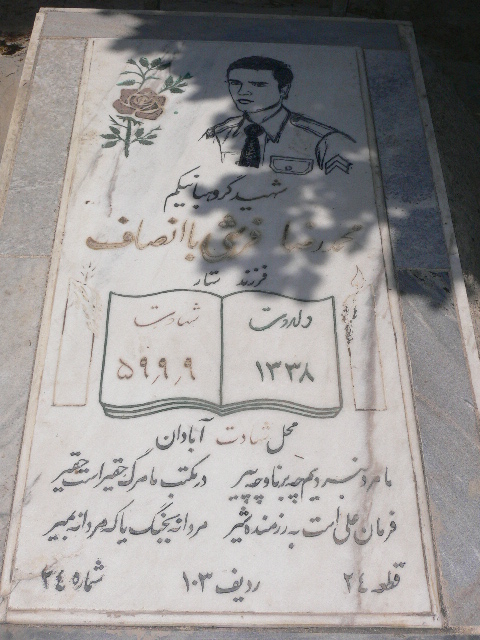 شهید گروهبانیکم
محمدرضا قریشی باانصاف
فرزند ستار
ولادت
۱۳۳۸
شهادت
۵۹٫۹٫۹
محل شهادت آبادان
ما مرد نبردیم چه برنا و چه پیر در مکتب ما مرگ حقیر است حقیر
فرمان علی است به رزمنده شیر مردانه بجنگ یا که مردانه بمیر
قطعه ۲۴ ردیف ۱۰۳ شماره ۳۴